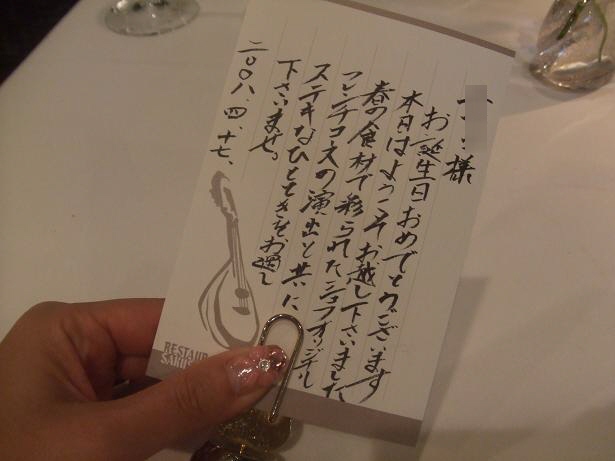 様
お誕生日おめでとうございます
本日はようこそお越し下さいました
春の食材で彩られたシェフオリジナル
フレンチコースの演出と共に
ステキなひとときをお過し
下さいませ。
二〇〇八、四、十七、
RESTAUR